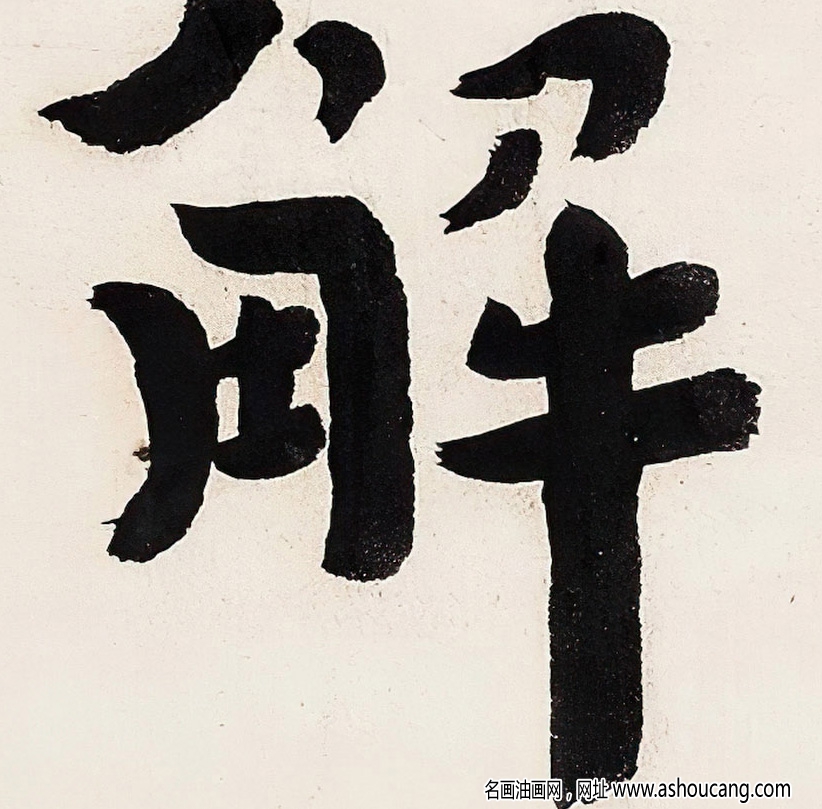 解
名画油画网，网址 www.ashoucang.com